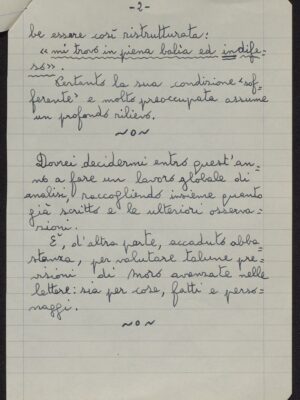 -2-
be essere così ristrutturata:
"mi trovo in piena balia ed indife-
so".
Pertanto la sua condizione "sof-
ferente" e molto preoccupata assume
un profondo rilievo.
~o~
Dovrei decidermi entro quest'an-
no a fare un lavoro globale di
analisi, raccogliendo insieme quanto
già scritto e le ulteriori osserva-
zioni.
È, d'altra parte, accaduto abba-
stanza, per valutare talune pre-
visioni di Moro avanzate nelle
lettere: sia per cose, fatti e perso-
naggi.
~o~